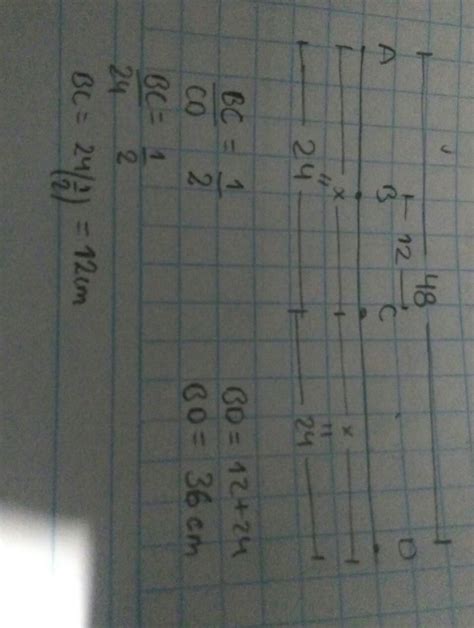 48
12
A B C D
x x
|| ||
24 24
BC = 1 BD = 12+24
CD 2 BD = 36 cm
BC = 1
24 2
BC = 24(1/2) = 12cm